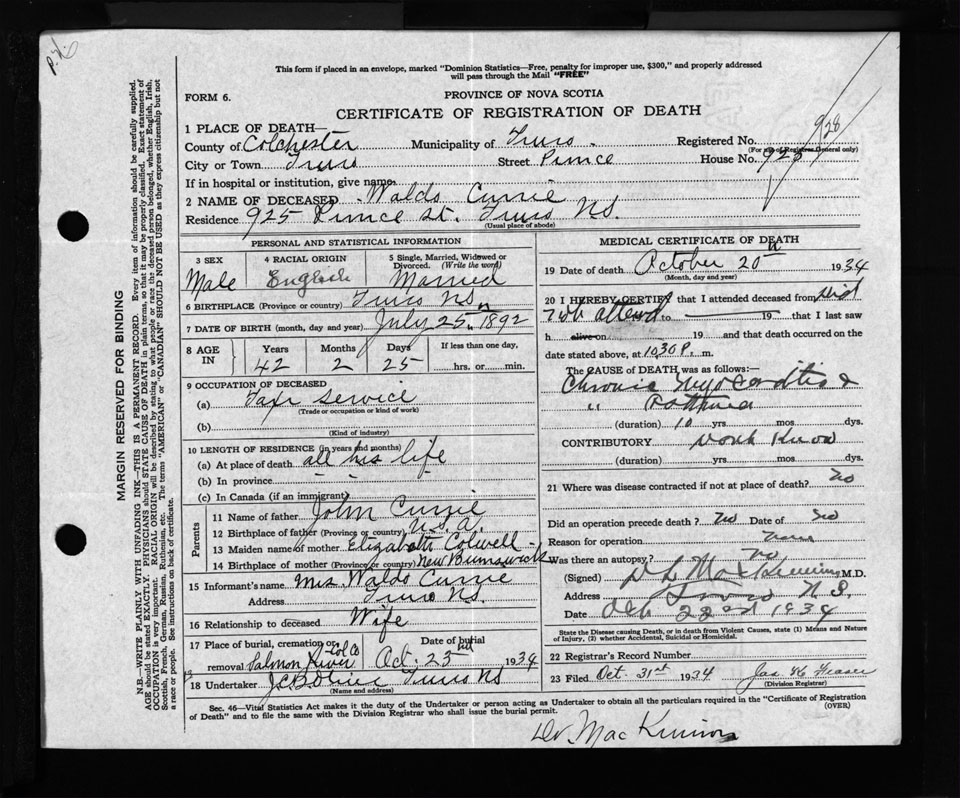 This form if placed in an envelope, marked "Dominion Statistics—Free, penalty for improper use, $300," and properly addressed
will pass through the Mail "FREE"
FORM 6.
PROVINCE OF NOVA SCOTIA
CERTIFICATE OF REGISTRATION OF DEATH
928
1 PLACE OF DEATH—
County of Colchester Municipality of Truro Registered No.
(For use of Registrar General only)
City or Town Truro Street Prince House No. 925
If in hospital or institution, give name
2 NAME OF DECEASED Waldo Currie
Residence 925 Prince St. Truro NS.
(Usual place of abode)
PERSONAL AND STATISTICAL INFORMATION
3 SEX 4 RACIAL ORIGIN 5 Single, Married, Widowed or Divorced. (Write the word)
Male English Married
6 BIRTHPLACE (Province or country) Truro NS
7 DATE OF BIRTH (month, day and year) July 25, 1892
8 AGE IN Years Months Days If less than one day,
42 2 25 hrs. or min.
9 OCCUPATION OF DECEASED
(a) Taxi Service
(Trade or occupation or kind of work)
(b)
(Kind of industry)
10 LENGTH OF RESIDENCE (in years and months)
(a) At place of death all his life
(b) In province
(c) In Canada (if an immigrant)
Parents
11 Name of father John Currie
12 Birthplace of father (Province or country) N.S.
13 Maiden name of mother Elizabeth Colwell
14 Birthplace of mother (Province or country) New Brunswick
15 Informant's name Mrs Waldo Currie
Address Truro NS.
16 Relationship to deceased Wife
17 Place of burial, cremation or removal Salmon River Col Co Date of burial Oct. 23rd 1934
18 Undertaker Truro NS
(Name and address)
MEDICAL CERTIFICATE OF DEATH
19 Date of death October 20th 1934
(Month, day and year)
20 I HEREBY CERTIFY that I attended deceased from Did
not attend to 19 that I last saw
h alive on 19 and that death occurred on the
date stated above, at 10 30 P. m.
The CAUSE OF DEATH was as follows:
Chronic Myocarditis &
" Asthma
(duration) 10 yrs. mos. dys.
CONTRIBUTORY Dont Know
(duration) yrs. mos. dys.
21 Where was disease contracted if not at place of death? No
Did an operation precede death? No Date of No
Reason for operation none
Was there an autopsy? no
(Signed) D L MacKinnon M.D.
Address Truro N S.
Date Oct 22nd 1934
State the Disease causing Death, or in death from Violent Causes, state (1) Means and Nature
of Injury, (2) whether Accidental, Suicidal or Homicidal.
22 Registrar's Record Number
23 Filed Oct. 31st 1934 Jas W Fraser
(Division Registrar)
Sec. 46—Vital Statistics Act makes it the duty of the Undertaker or person acting as Undertaker to obtain all the particulars required in the "Certificate of Registration
of Death" and to file the same with the Division Registrar who shall issue the burial permit.
(OVER)
Dr. MacKinnon
MARGIN RESERVED FOR BINDING
N.B.—WRITE PLAINLY WITH UNFADING INK—THIS IS A PERMANENT RECORD. Every item of information should be carefully supplied.
AGE should be stated EXACTLY. PHYSICIANS should STATE CAUSE OF DEATH in plain terms, so that it may be properly classified. Exact statement of
OCCUPATION is very important. RACIAL ORIGIN will be described by stating to what people or race the deceased person belonged, whether English, Irish,
Scottish, French, German, Russian, Ruthenian, etc. The terms "AMERICAN" or "CANADIAN" SHOULD NOT BE USED as they express citizenship but not
a race or people. See instructions on back of certificate.